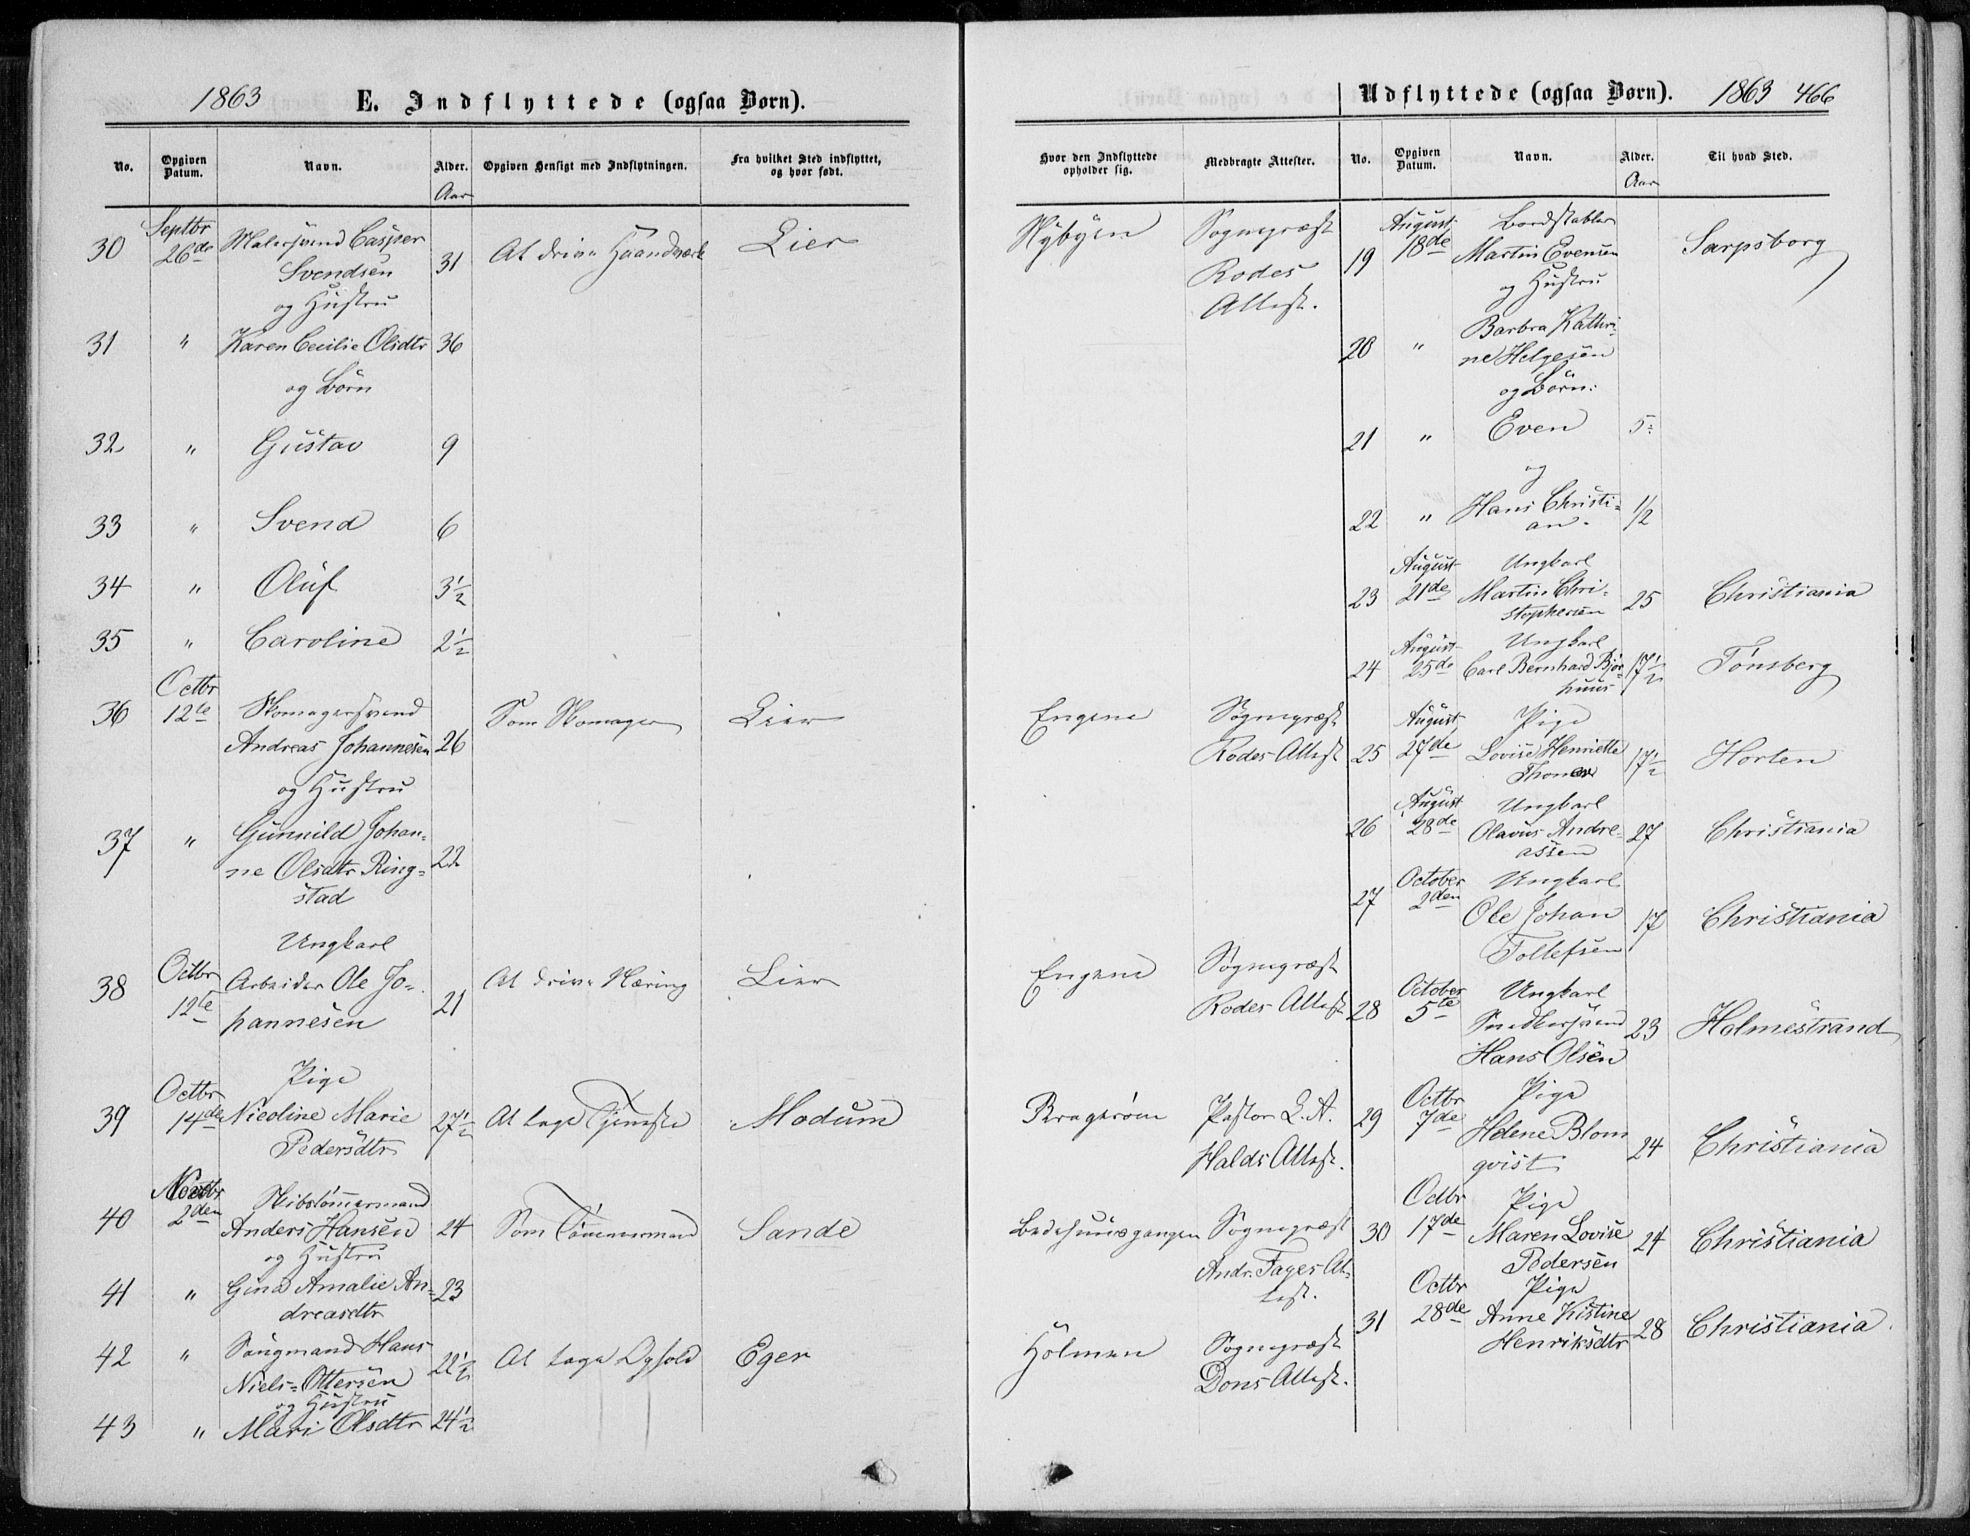 1863
E. Indflyttede (ogsaa Børn).
No.
Opgiven Datum.
Navn.
Alder.
Opgiven Hensigt med Indflytningen.
Fra hvilket Sted indflyttet, og hvor født.
Aar
30 Septbr 26de Malersvend Casper 31 At drive Haandværk Lier
Svendsen
og Hustru
31 " Karen Cecilie Olsdtr 36
og Børn
32 " Gustav 9
33 " Svend 6
34 " Oluf 3½
35 " Caroline 2½
36 Octbr 12te Skomagersvend Som Skomager Lier
Andreas Johannesen 26
og Hustru
37 " Gunnild Johan-
ne Olsdtr Ring- 22
stad
Ungkarl
38 Octbr 12te Arbeider Ole Jo- 21 At drive Næring Lier
hannesen
Pige
39 Octbr 14de Nicoline Marie 27½ At tage Tjeneste Modum
Pedersdtr
40 Novbr 2den Skibstømmermand
Anders Hansen 24 Som Tømmermand Sande
og Hustru
41 " Gina Amalie An- 23
dreasdtr
42 " Saugmand Hans
Niels-Ottersen 22½ At tage Ophold Eger
og Hustru
43 " Mari Olsdtr 24½
Udflyttede (ogsaa Børn). 1863 466
Hvor den Indflyttede opholder sig.
Medbragte Attester.
No.
Opgiven Datum.
Navn.
Alder.
Til hvad Sted.
Aar
Nybyen Sognepræst
Rodes
Attest.
Engene Sognepræst
Rodes Attest
Engene Sognepræst
Rodes Attest
Bragerøen Pastor L. A.
Halds Attest.
Bedehuusgangen Sognepræst
Andr. Fayes At-
test.
Holmen Sognepræst
Dons Attest.
19 August 18de Bordstabler
Martin Evensen Sarpsborg
og Hustru
20 " Barbra Kathri-
ne Helgesen
og Børn:
21 " Even 5
og
22 " Hans Christi- ½
an.
23 August 21de Ungkarl
Martin Chri- 25 Christiania
stophersen
24 August 25de Ungkarl
Carl Bernhard 17½ Tønsberg
25 August 27de Pige
Lovise Henriette 17½ Horten
26 August 28de Ungkarl
Olavus Andre- 27 Christiania
assen
27 October 2den Ungkarl
Ole Johan 17 Christiania
Tollefsen
28 October 5te Ungkarl
Snedkersvend 23 Holmestrand
Hans Olsen
29 Octbr 7de Pige
Helene Blom 24 Christiania
qvist
30 Octbr 17de Pige
Maren Lovise 24 Christiania
Pedersen
31 Octbr 28de Pige
Anne Kistine 28 Christiania.
Henriksdtr